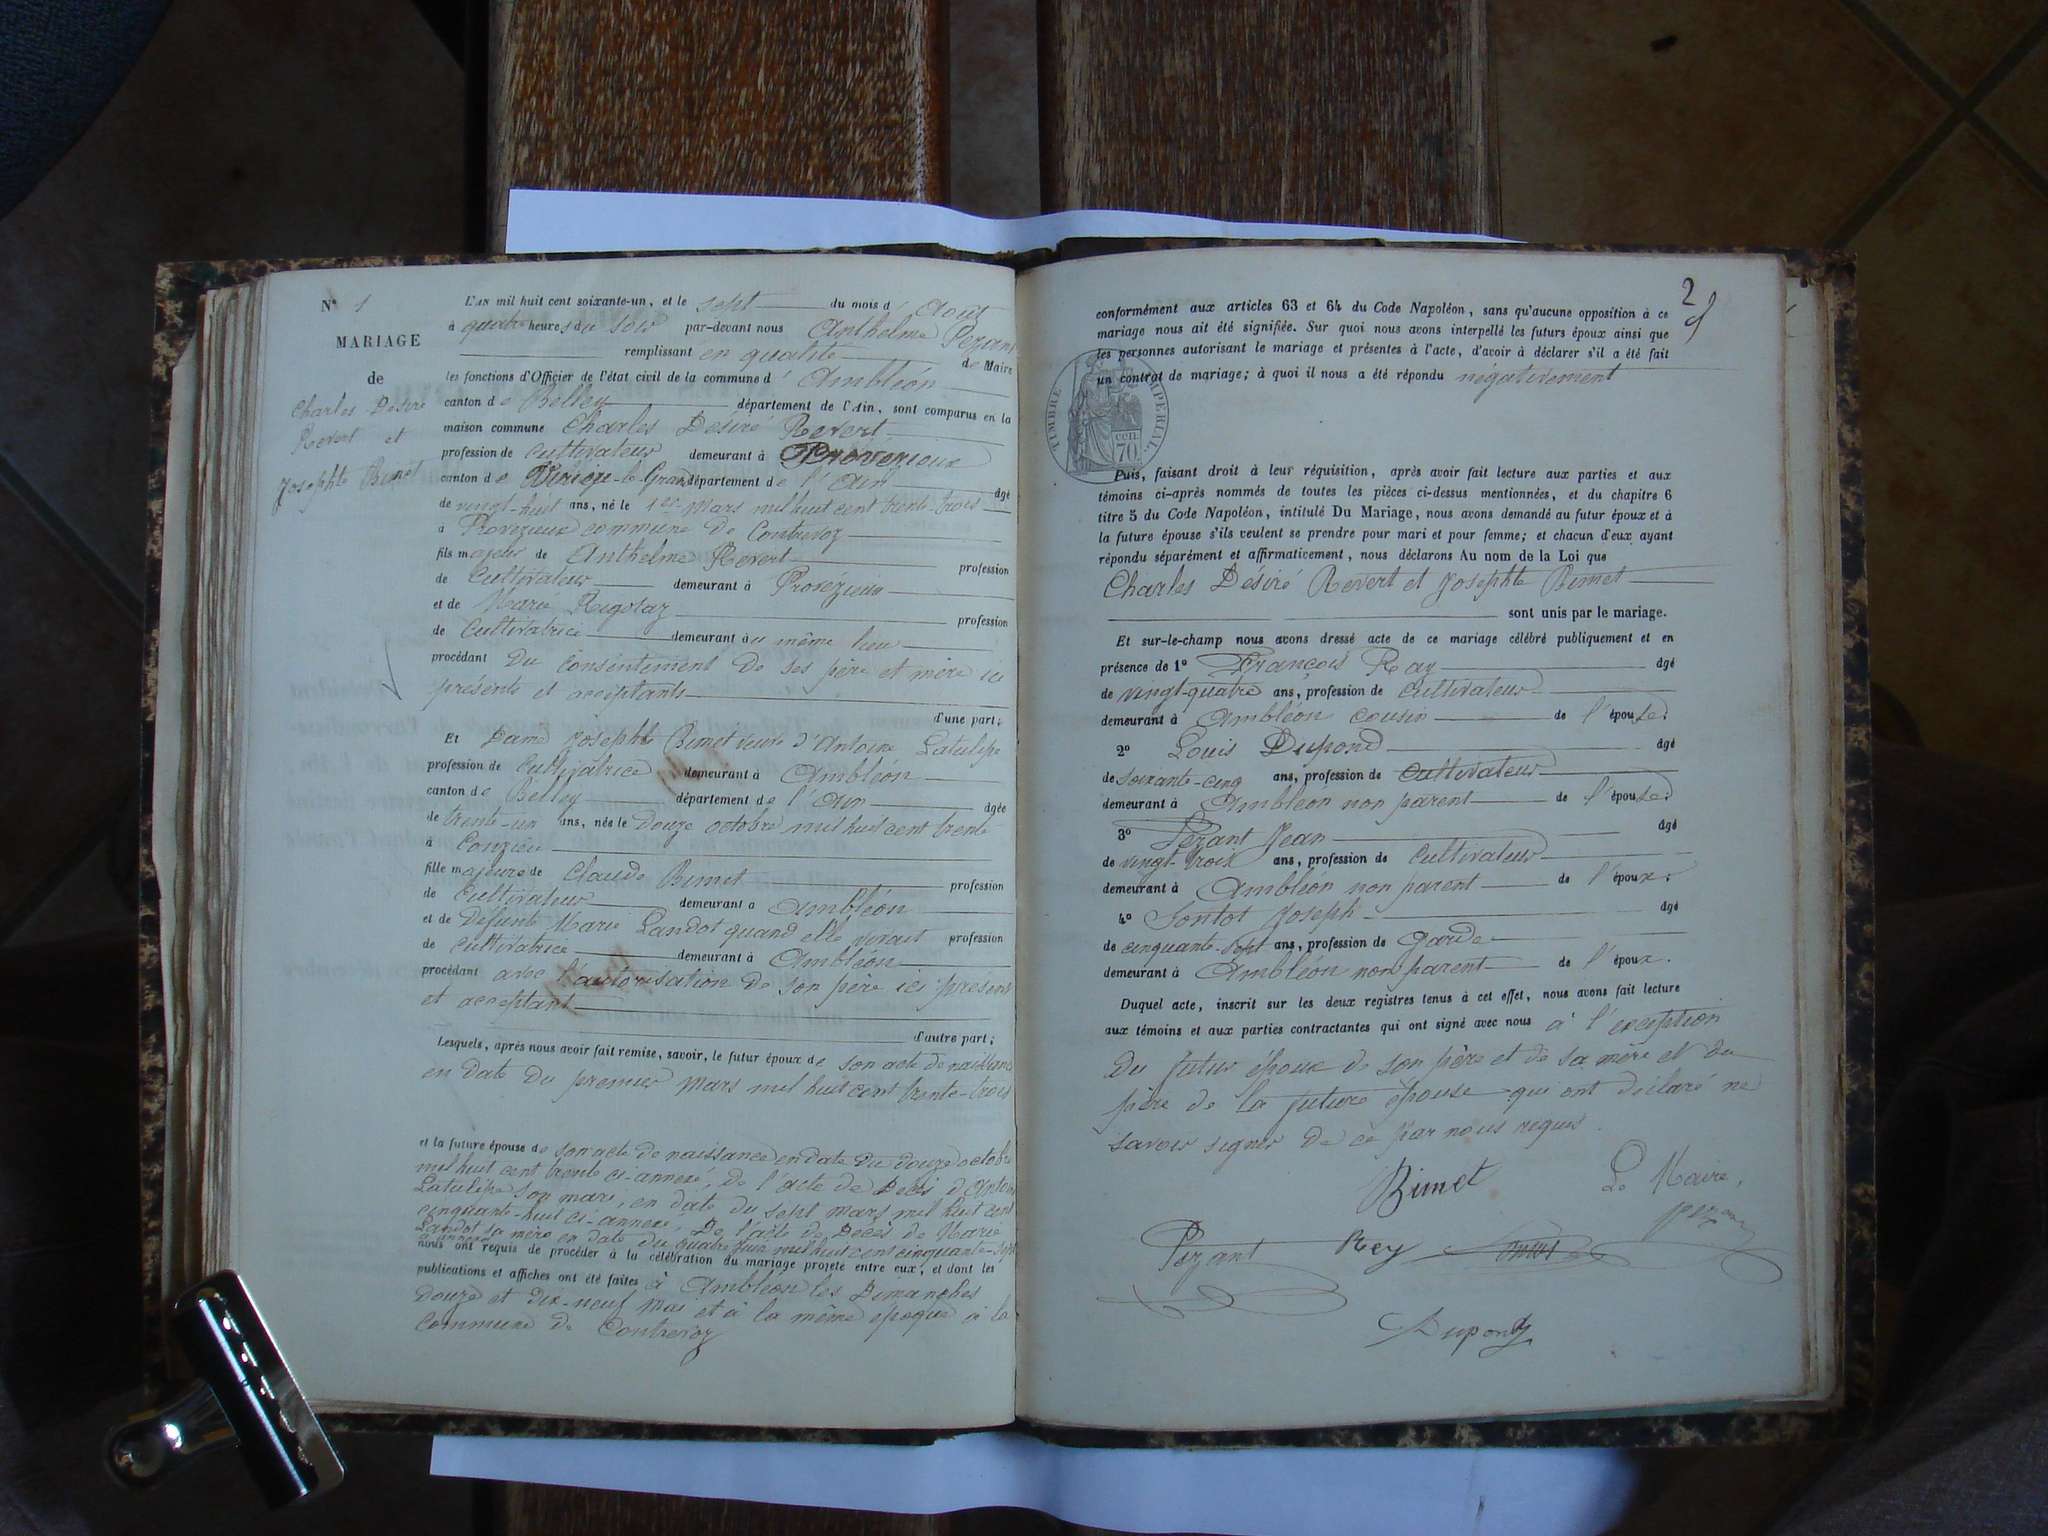 N° 1
MARIAGE
de
Charles Désiré
Revert et
Josephte Bimet
L'AN mil huit cent soixante-un, et le sept du mois d' Août
à quatre heures du soir par-devant nous Anthelme Pezant
remplissant en qualité de Maire
les fonctions d'Officier de l'état civil de la commune d' Ambléon
canton de Belley département de l'Ain, sont comparus en la
maison commune Charles Désiré Revert
profession de Cultivateur demeurant à Provezieux
canton de Virieu-le-Grand département de l'Ain âgé
de vingt-huit ans, né le 1er Mars mil huit cent trente-trois
à Provezieux commune de Contrevoz
fils majeur de Anthelme Revert profession
de Cultivateur demeurant à Provézieux
et de Marie Rigolaz profession
de Cultivatrice demeurant au même lieu
procédant du consentement de ses père et mère ici
présents et acceptants
d'une part;
Et Dame Josephte Bimet veuve d'Antoine Latulipe
profession de Cultivatrice demeurant à Ambléon
canton de Belley département de l'Ain âgée
de trente-un ans, née le douze octobre mil huit cent trente
à Conzieu
fille majeure de Claude Bimet profession
de Cultivateur demeurant à Ambléon
et de Défunte Marie Landot quand elle vivait profession
de Cultivatrice demeurant à Ambléon
procédant avec l'autorisation de son père ici présent
et acceptant
d'autre part;
Lesquels, après nous avoir fait remise, savoir, le futur époux de son acte de naissance
en date du premier Mars mil huit cent trente-trois
et la future épouse de son acte de naissance en date du douze octobre
mil huit cent trente ci-annexé, de l'acte de Décès d'Antoine
Latulipe son mari, en date du sept mars mil huit cent
cinquante-huit ci-annexé, De l'acte de Décès de Marie
Landot sa mère en date du quatre juin mil huit cent cinquante-sept
ci annexé
nous ont requis de procéder à la célébration du mariage projeté entre eux, et dont les
publications et affiches ont été faites à Ambléon les Dimanches
douze et dix-neuf Mai et à la même époque à la
Commune de Contrevoz
2
conformément aux articles 63 et 64 du Code Napoléon, sans qu'aucune opposition à ce
mariage nous ait été signifiée. Sur quoi nous avons interpellé les futurs époux ainsi que
les personnes autorisant le mariage et présentes à l'acte, d'avoir à déclarer s'il a été fait
un contrat de mariage; à quoi il nous a été répondu négativement
TIMBRE IMPERIAL
cen.
70
Puis, faisant droit à leur réquisition, après avoir fait lecture aux parties et aux
témoins ci-après nommés de toutes les pièces ci-dessus mentionnées, et du chapitre 6
titre 5 du Code Napoléon, intitulé Du Mariage, nous avons demandé au futur époux et à
la future épouse s'ils veulent se prendre pour mari et pour femme; et chacun d'eux ayant
répondu séparément et affirmativement, nous déclarons Au nom de la Loi que
Charles Désiré Revert et Josephte Bimet
sont unis par le mariage.
Et sur-le-champ nous avons dressé acte de ce mariage célébré publiquement et en
présence de 1° François Rey âgé
de vingt-quatre ans, profession de Cultivateur
demeurant à Ambléon cousin de l'épouse.
2° Louis Dupond âgé
de soixante-cinq ans, profession de Cultivateur
demeurant à Ambléon non parent de l'épouse.
3° Pezant Jean âgé
de vingt-trois ans, profession de Cultivateur
demeurant à Ambléon non parent de l'époux.
4° Joseph âgé
de cinquante-sept ans, profession de Garde
demeurant à Ambléon non parent de l'époux.
Duquel acte, inscrit sur les deux registres tenus à cet effet, nous avons fait lecture
aux témoins et aux parties contractantes qui ont signé avec nous à l'exception
du futur époux de son père et de sa mère et du
père de la future épouse qui ont déclaré ne
savoir signer de ce par nous requis.
Bimet Le Maire,
Pezant
Pezant Rey
Dupond